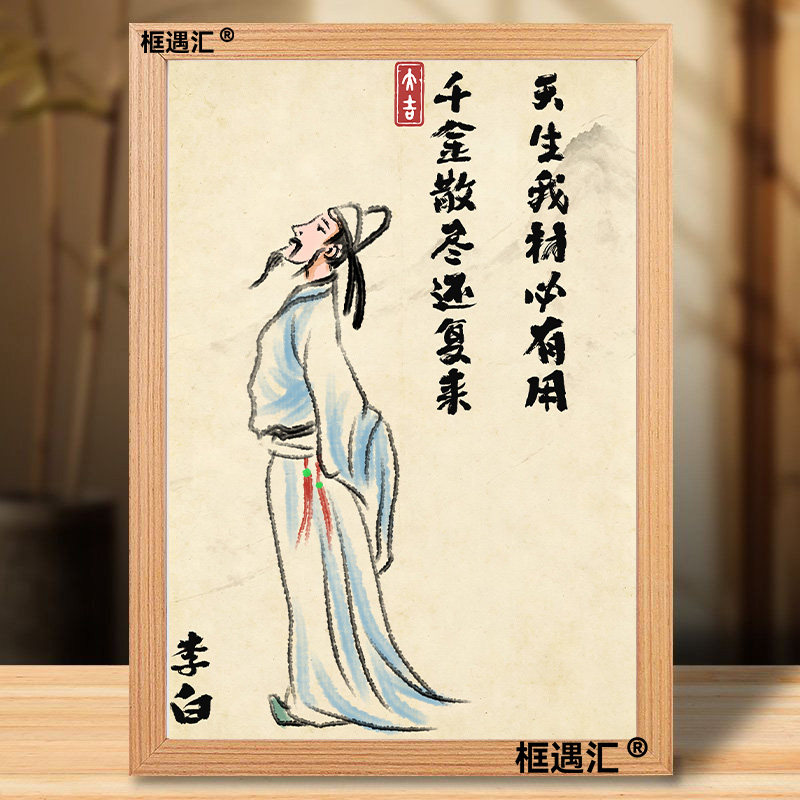 框遇汇®
天生我材必有用
千金散尽还复来
大吉
李白
框遇汇®